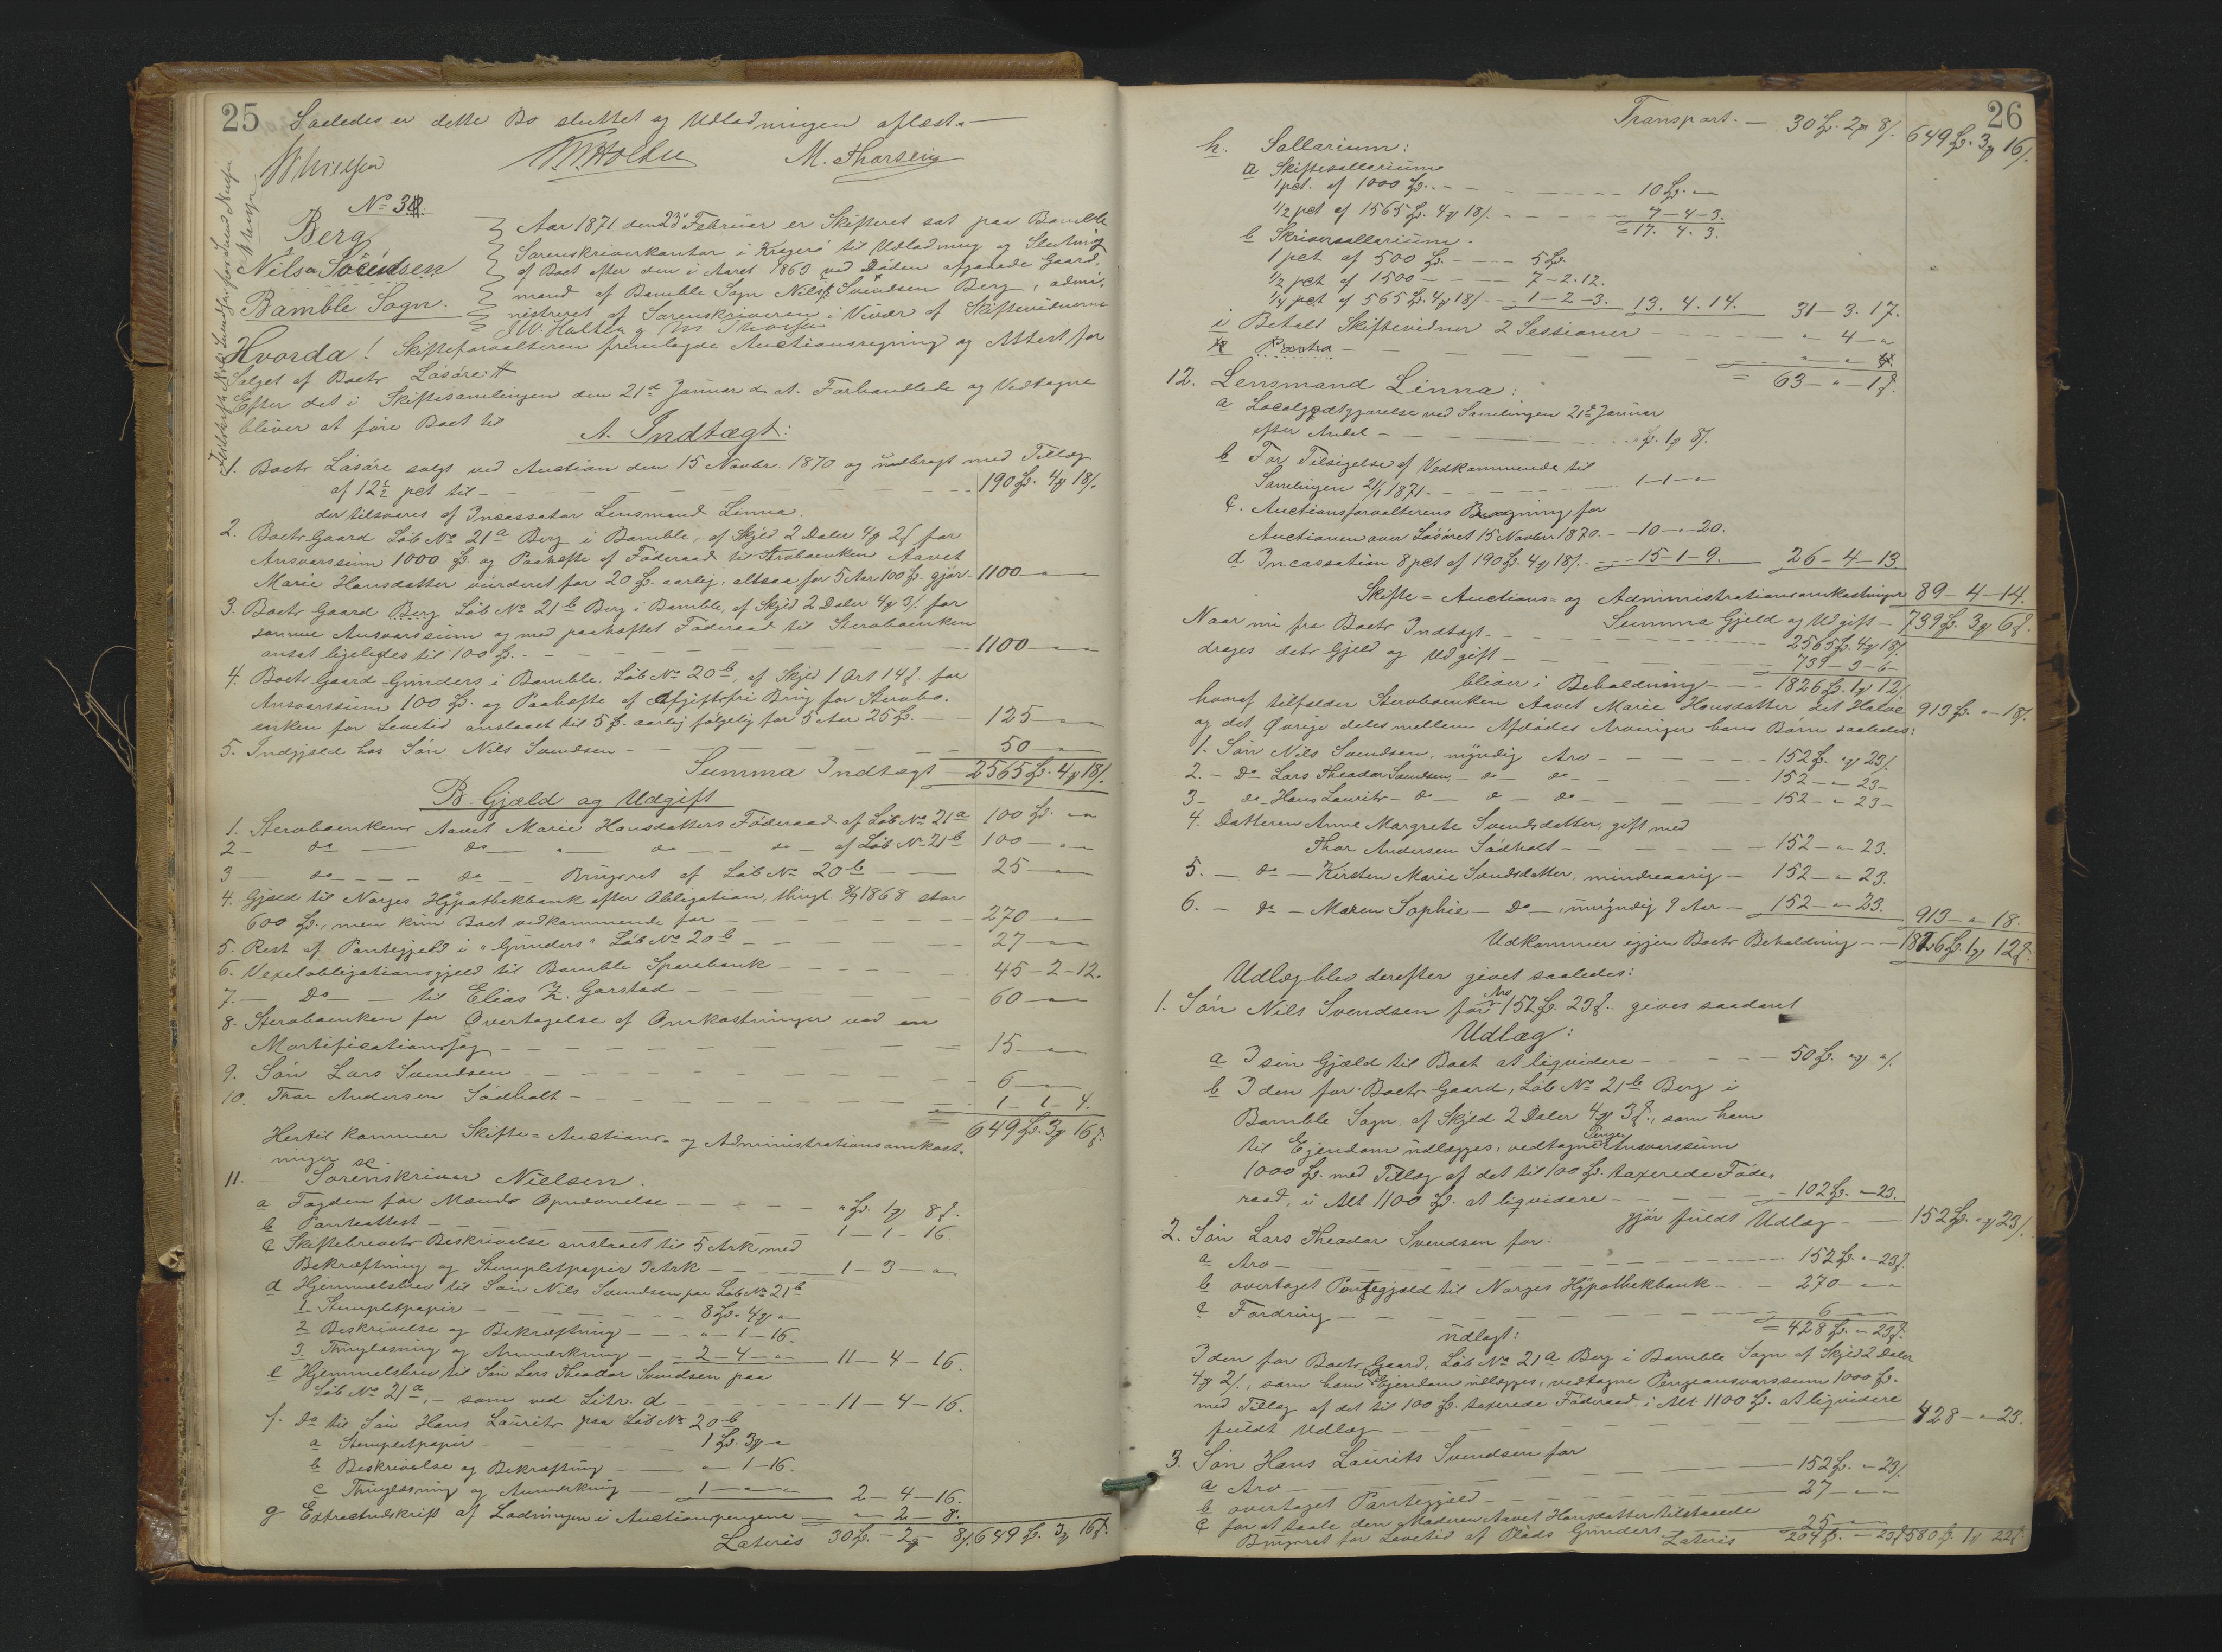 25
Saaledes er dette Bo sluttet og Udlodningen oplæst. —
M. Thorsen
No 31.
Berg
Nils Svendsen
Bamble Sogn.
Aar 1871 den 23de Februar er Skifteret sat paa Bamble
Sorenskriverkontor i Kragerö til Udlodning og Slutning
af Boet efter den i Aaret 1869 ved Döden afgaaede Gaard-
mand af Bamble Sogn Nils Svendsen Berg, admi-
nistreret af Sorenskriveren i Nivær af Skiftevidnerne
Holten og M Thorsen
Hvorda! Skifteforvalteren fremlagde Auctionsregning og Attest for
Salget af Boets Lösöre.
Efter det i Skiftesamlingen den 21de Januar d. A. Forhandlede og Vedtagne
bliver at före Boet til
A. Indtægt:
1. Boets Lösöre solgt ved Auction den 15 Novbr. 1870 og udbragt med Tillæg
af 12½ pct til — 190 Sp. 4 18 s.
der tilsvares af Incassator Lensmand Linna.
2. Boets Gaard Löb No 21a Berg i Bamble, af Skjld 2 Daler 4 2 s for
Ansvarssum 1000 Sp. og Paahefte af Föderaad til Stervboenken Aavet
Marie Hansdatter vurderet for 20 Sp. aarlig, altsaa for 5 Aar 100 Sp. gjör — 1100 — " — "
3. Boets Gaard Berg Löb No 21b Berg i Bamble, af Skjld 2 Daler 4 3 s. for
samme Ansvarssum og med paaheftet Föderaad til Stervboenken
ansat ligeledes til 100 Sp. — 1100 — " — "
4. Boets Gaard Grinders i Bamble, Löb No 20b, af Skjld 1 Ort 14 s. for
Ansvarssum 100 Sp. og Paahefte af Afgiftsfri Brug for Stervbo-
enken for Levetid anslaaet til 5 Sp. aarlig fölgelig for 5 Aar 25 Sp. — 125 — " — "
5. Indgjæld hos Sön Nils Svendsen — 50 — " — "
Summa Indtægt — 2565 Sp. 4 18 s.
B. Gjæld og Udgift
1. Stervboenkens Aavet Marie Hansdatters Föderaad af Löb No 21a 100 Sp. " — "
2 — do — do — " — do — do — af Löb No 21b 100 — " — "
3 — do — do — Brugsret af Löb No 20b — 25 — " — "
4. Gjæld til Norges Hypothekbank efter Obligation, thingl. 8/9 1868 stor
600 Sp., men kun Boet vedkommende for — 270 — " — "
5. Rest af Pantegjeld i "Grinders" Löb No 20b — 27 — " — "
6. Vexelobligationsgjeld til Bamble Sparebank — 45 — 2 — 12.
7. — Do — til Elias Z. Garstad — 60 — " — "
8. Stervboenken for Overtagelse af Omkostninger ved en
Mortificationssag — 15 — " — "
9. Sön Lars Svendsen — 6 — " — "
10. Thor Andersen Södholt — 1 — 1 — 4.
= 649 Sp. 3 16 s.
Hertil kommer Skifte- Auctions- og Administrationsomkost-
ninger sc.
11. Sorenskriver Nielsen.
a Fogden for Mænds Opnævnelse — " Sp. 1 8 s.
b Panteattest — 1 — 1 — 16.
c Skiftebrevets Beskrivelse anslaaet til 5 Ark med
Bekræftning og Stempletpapir 3 Ark — 1 — 3 — "
d Hjemmelsbrev til Sön Nils Svendsen paa Löb No 21b
1 Stempletpapir — 8 Sp. 4 "
2 Beskrivelse og Bekræftning — " — 1 — 16.
3. Thinglæsning og Anmerkning — 2 — 4 — " 11 — 4 — 16.
e Hjemmelsbrev til Sön Lars Theodor Svendsen paa
Löb No 21a, — som ved Litr. d — 11 — 4 — 16.
f. Do til Sön Hans Laurits paa Löb No 20b
a Stempletpapir — 1 Sp. 3 "
b Beskrivelse og Bekræftning — " — 1 — 16.
c Thinglæsning og Anmerkning — 1 — " — " 2 — 4 — 16.
g Extractudskrift af Lodningen i Auctionspengene — " — 2 — 8.
Lateris 30 Sp. — 2 8 s. 649 Sp. 3 16 s.
26
Transport. — 30 Sp. 2 8 s. 649 Sp. 3 16 s.
h. Sallarium:
a Skiftesallarium
1 pct. af 1000 Sp. — 10 Sp. "
1/2 pct af 1565 Sp. 4 18 s. — 7 — 4 — 3.
= 17. 4. 3.
b Skriversallarium.
1 pct af 500 Sp. — 5 Sp.
1/2 pct af 1500 — 7 — 2. 12.
1/4 pct af 565 Sp. 4 18 s — 1 — 2 — 3. 13. 4. 14. 31 — 3. 17.
i Betalt Skiftevidner 2 Sessioner — " 4 — "
k Porto
= 63 — " — 1 s.
12. Lensmand Linna:
a Localgodtgjörelse ved Samlingen 21de Januar
efter Andel — " Sp. 1 8 s.
b For Tilsigelse af Vedkommende til
Samlingen 21/1 1871. — 1 — 1 — "
c. Auctionsforvalterens Regning for
Auctionen over Lösöret 15 Novbr. 1870. — 10 — " — 20.
d Incassation 8 pct af 190 Sp. 4 18 s. — 15 — 1 — 9. 26 — 4 — 13
Skifte- Auctions- og Administrationsomkostninger 89 — 4 — 14.
Summa Gjeld og Udgift — 739 Sp. 3 6 s.
Naar nu fra Boets Indtægt — 2565 Sp. 4 18 s.
drages dets Gjeld og Udgift — 739 — 3 — 6 —
bliver i Beholdning — 1826 Sp. 1 12 s.
hvoraf tilfalder Stervboenken Aavet Marie Hansdatter det Halve 913 Sp. " 18 s.
og det Övrige deles mellem Afdödes Arvinger hans Börn saaledes:
1. Sön Nils Svendsen, myndig Arv — 152 Sp. " 23 s.
2. — Do Lars Theodor Svendsen, — do — do — 152 — " — 23 —
3 — do — Hans Laurits — do — do — do — 152 — " — 23 —
4. Datteren Anne Margrete Svendsdatter, gift med
Thor Andersen Södholt — 152 — " — 23.
5. — do — Kirsten Marie Svendsdatter, mindreaarig — 152 — " — 23.
6. — do — Maren Sophie — Do —, umyndig 9 Aar — 152 — " — 23. 913 — " — 18.
Udkommer igjen Boets Beholdning — 1826 Sp. 1 12 s.
Udlæg blev derefter givet saaledes:
1. Sön Nils Svendsen for Arv 152 Sp. 23 s. gives saadant
Udlæg:
a I sin Gjæld til Boet at liqvidere — 50 Sp. " "
b I den for Boets Gaard, Löb No 21b Berg i
Bamble Sogn, af Skjld 2 Daler 4 3 s., som ham
til Ejendom udlægges, vedtagne Penge Ansvarssum
1000 Sp. med Tillæg af det til 100 Sp. taxerede Föde-
raad, i Alt 1100 Sp. at liqvidere — 102 Sp. " 23.
gjör fuldt Udlæg — 152 Sp. " 23 s.
2. Sön Lars Theodor Svendsen for:
a Arv — 152 Sp. " 23 s.
b overtaget Pantegjæld til Norges Hypothekbank — 270 — " — "
c Fordring — 6 — " — "
= 428 Sp. " 23 s.
udlagt:
I den for Boets Gaard, Löb No 21a Berg i Bamble Sogn af Skjld 2 Daler
4 2 s., som ham til Ejendom udlægges, vedtagne Pengeansvarssum 1000 Sp.
med Tillæg af det til 100 Sp. taxerede Föderaad i Alt 1100 Sp. at liqvidere
fuldt Udlæg — 428 — " — 23.
3. Sön Hans Laurits Svendsen for
a Arv — 152 Sp. " 23 s.
b overtaget Pantegjæld — 27 — " — "
c for at taale den Moderen Aavet Hansdatter tilstaaede
Brugsret for Levetid af Plads Grinders 25 — " — "
Lateris 204 Sp. — 23 s 580 Sp. 1 22 s